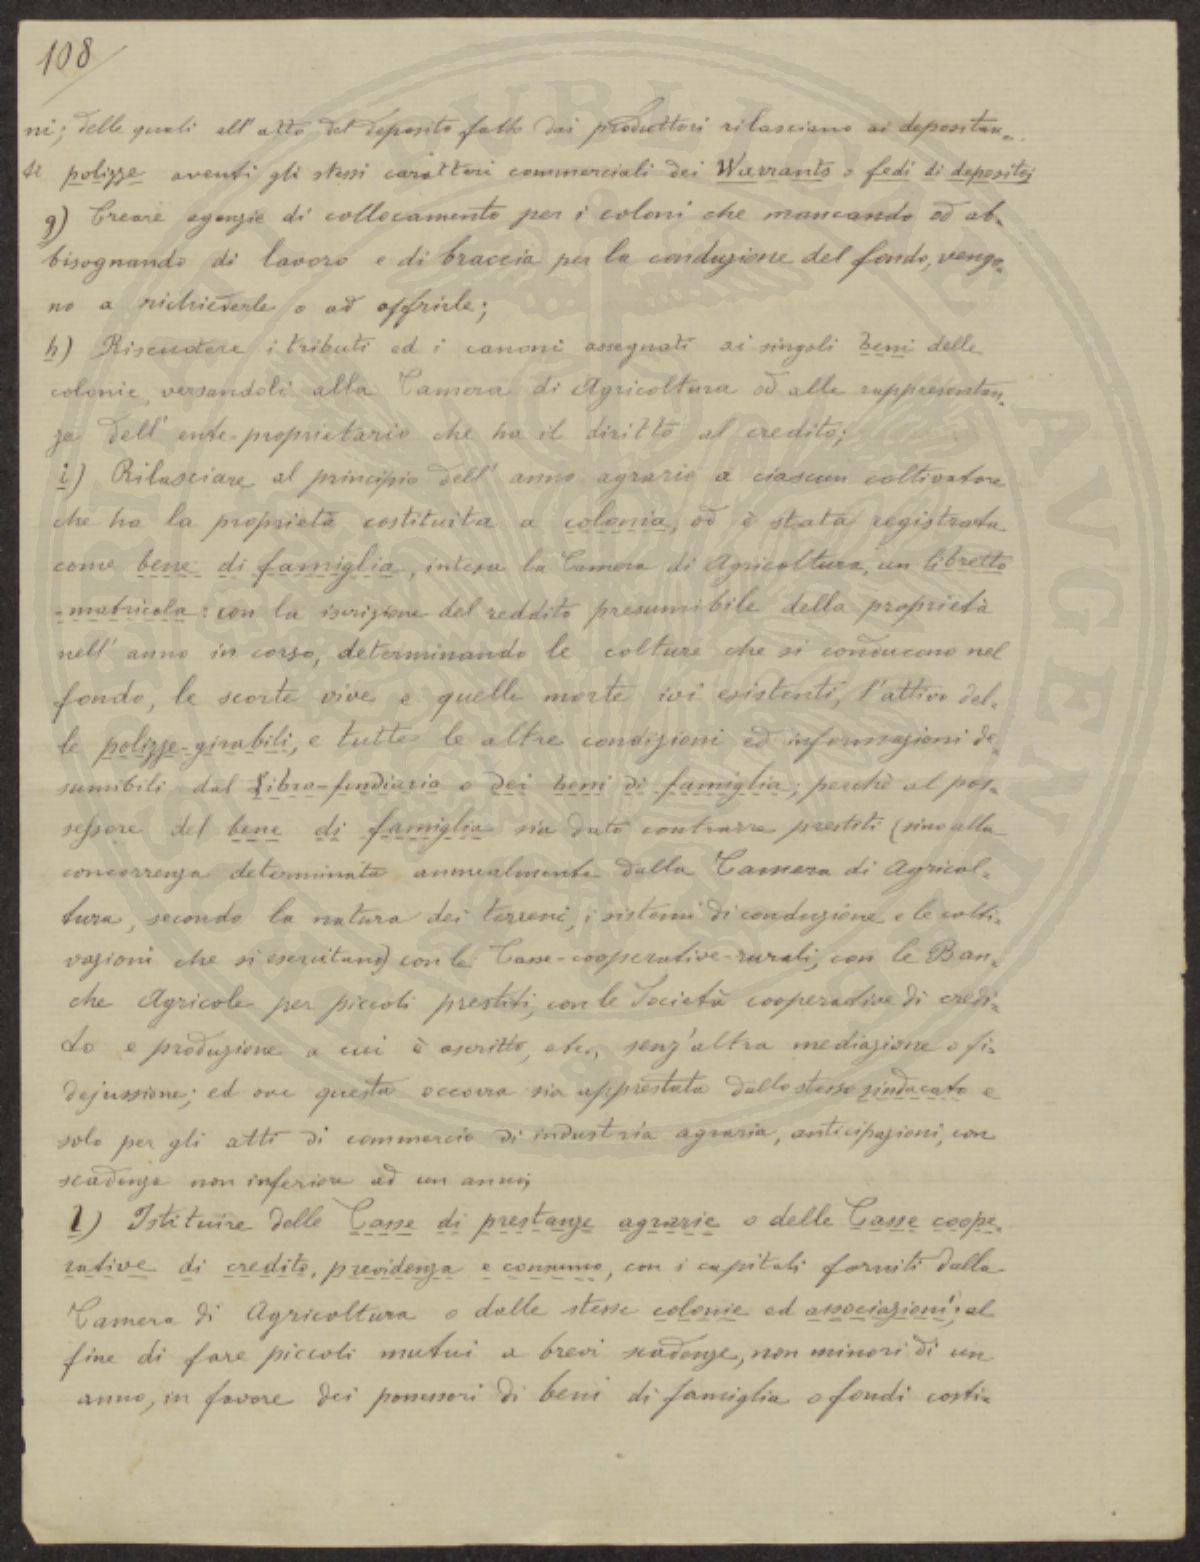 108
ni; delle quali all'atto del deposito fatto dai produttori rilasciano ai depositan=
ti polizze aventi gli stessi caratteri commerciali dei Warrants o fedi di deposito;
g) Creare agenzie di collocamento per i coloni che mancando od ab=
bisognando di lavoro e di braccia per la conduzione del fondo, vengo=
no a richiederle o ad offrirle;
h) Riscuotere i tributi ed i canoni assegnati ai singoli beni delle
colonie, versandoli alla Camera di Agricoltura od alle rappresentan=
ze dell'ente-proprietario che ha il diritto al credito;
i) Rilasciare al principio dell'anno agrario a ciascun coltivatore
che ha la proprietà costituita a colonia, od è stata registrata
come bene di famiglia, intesa la Camera di Agricoltura, un libretto
-matricola: con la iscrizione del reddito presumibile della proprietà
nell'anno in corso, determinando le colture che si conducono nel
fondo, le scorte vive e quelle morte ivi esistenti, l'attivo del=
le polizze-girabili, e tutte le altre condizioni ed informazioni de=
sumibili dal Libro-fondiario o dei beni di famiglia; perchè al pos=
sessore del bene di famiglia sia dato contrarre prestiti (sino alla
concorrenza determinata annualmente dalla Camera di Agricol=
tura, secondo la natura dei terreni, i sistemi di conduzione e le colti=
vazioni che si esercitano) con le Casse-cooperative-rurali, con le Ban=
che Agricole per piccoli prestiti, con le Società cooperative di credi=
to e produzione a cui è ascritto, etc., senz'altra mediazione o fi=
dejussione; ed ove questa occorra sia apprestata dallo stesso sindacato e
solo per gli atti di commercio di industria agraria, anticipazioni, con
scadenza non inferiore ad un anno;
l) Istituire delle Casse di prestanze agrarie o delle Casse coope=
rative di credito, previdenza e consumo, con i capitali forniti dalla
Camera di Agricoltura o dalle stesse colonie ed associazioni; al
fine di fare piccoli mutui a brevi scadenze, non minori di un
anno, in favore dei possessori di beni di famiglia o fondi costi=